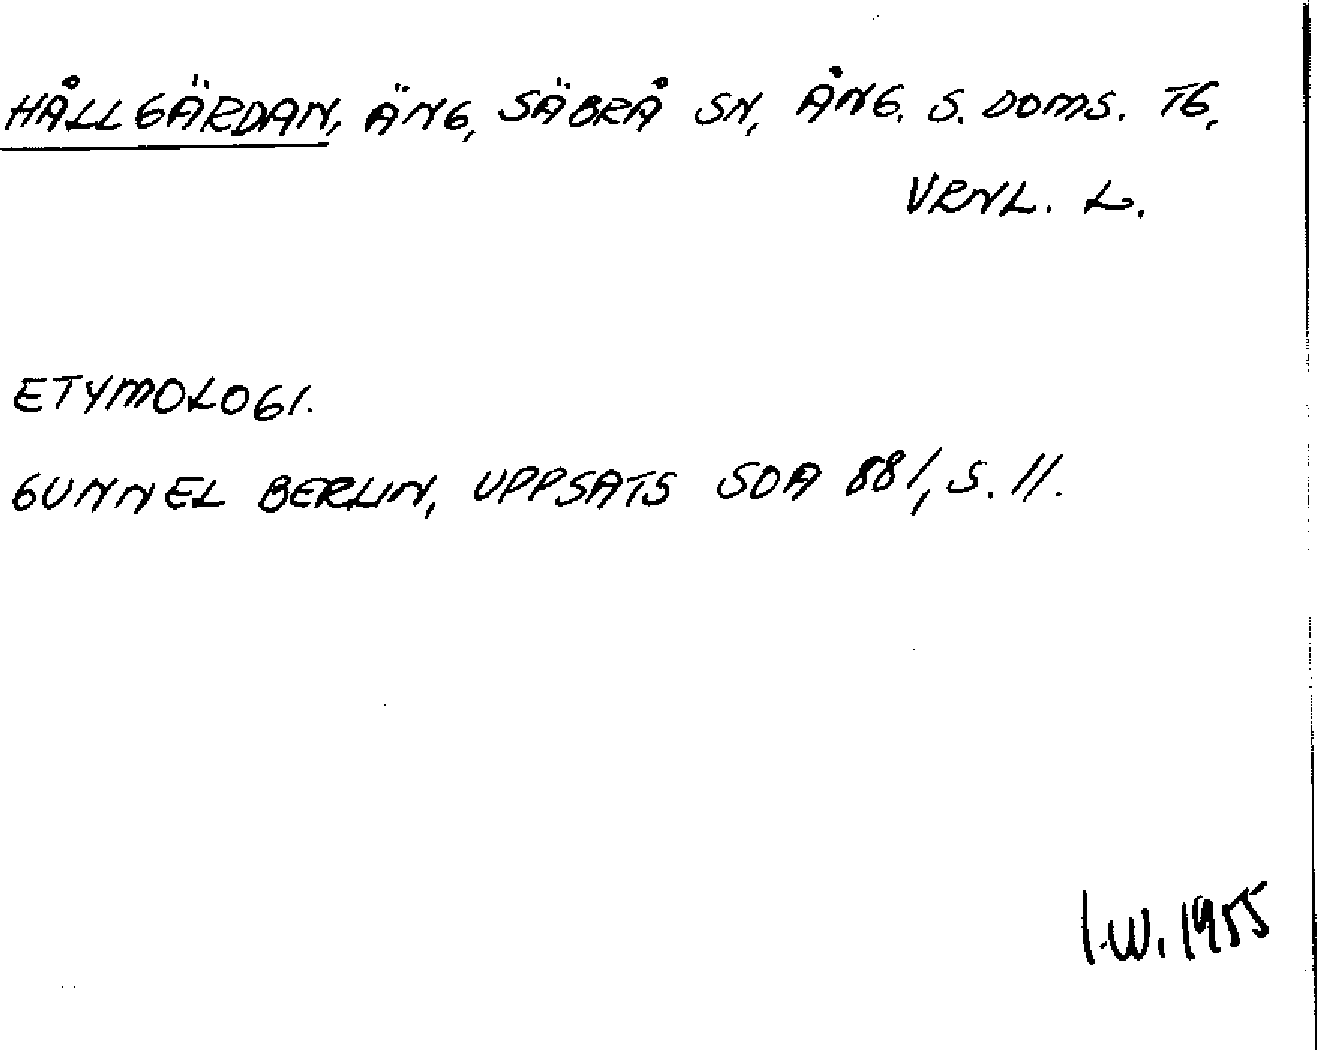 HÅLLGÄRDAN, ÄNG, SÄBRÅ SN, ÅNG. S. DOMS. TG,
VRNL. L.
ETYMOLOGI.
GUNNEL BERLIN, UPPSATS SOA 881, S. 11.
I.W. 1955